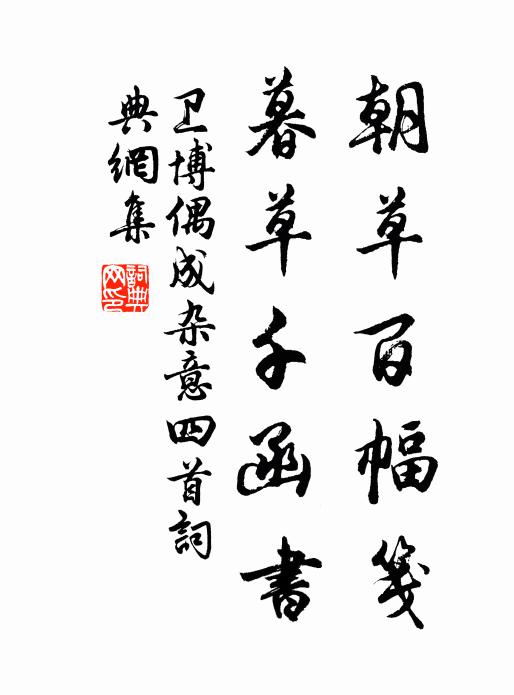 朝草百幅箋
暮草千函書
卫博偶成杂意四首詞
典網集
詞典
网印